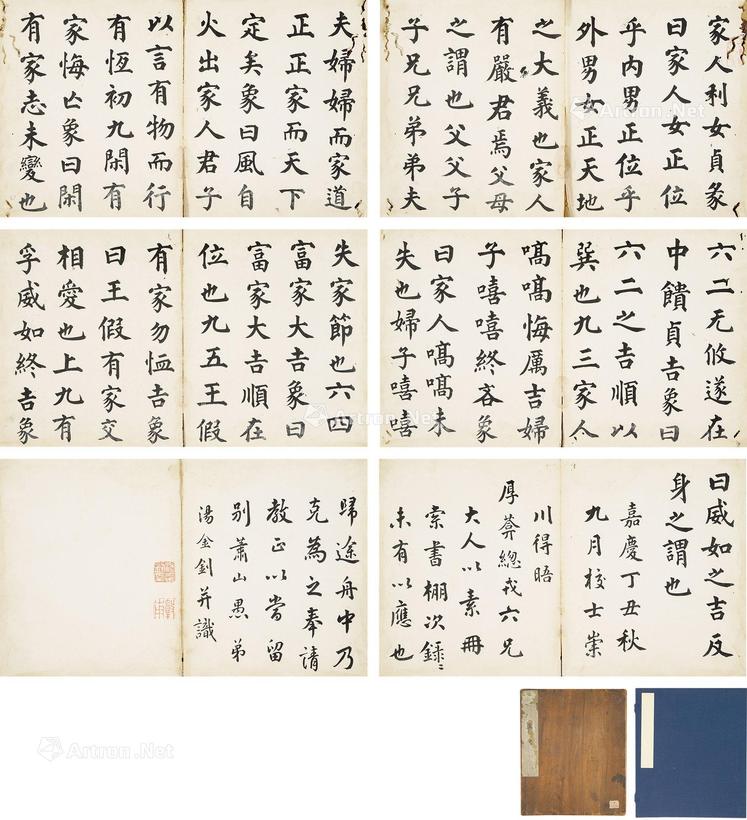 家人利女貞彖
曰家人女正位
乎内男正位乎
外男女正天地
之大義也家人
有嚴君焉父母
之謂也父父子
子兄兄弟弟夫
夫婦婦而家道
正正家而天下
定矣象曰風自
火出家人君子
以言有物而行
有恆初九閑有
家悔亡象曰閑
有家志未變也
六二无攸遂在
中饋貞吉象曰
六二之吉順以
巽也九三家人
嗃嗃悔厲吉婦
子嘻嘻終吝象
曰家人嗃嗃未
失也婦子嘻嘻
失家節也六四
富家大吉象曰
富家大吉順在
位也九五王假
有家勿恤吉象
曰王假有家交
相愛也上九有
孚威如終吉象
曰威如之吉反
身之謂也
嘉慶丁丑秋
九月校士崇
川得晤
厚葊總戎六兄
大人以素冊
索書棚次録〻
未有以應也
歸途舟中乃
克為之奉請
教正以當留
别蕭山愚弟
湯金釗并識
Artron.Net
Artron.Net
Artron.Net